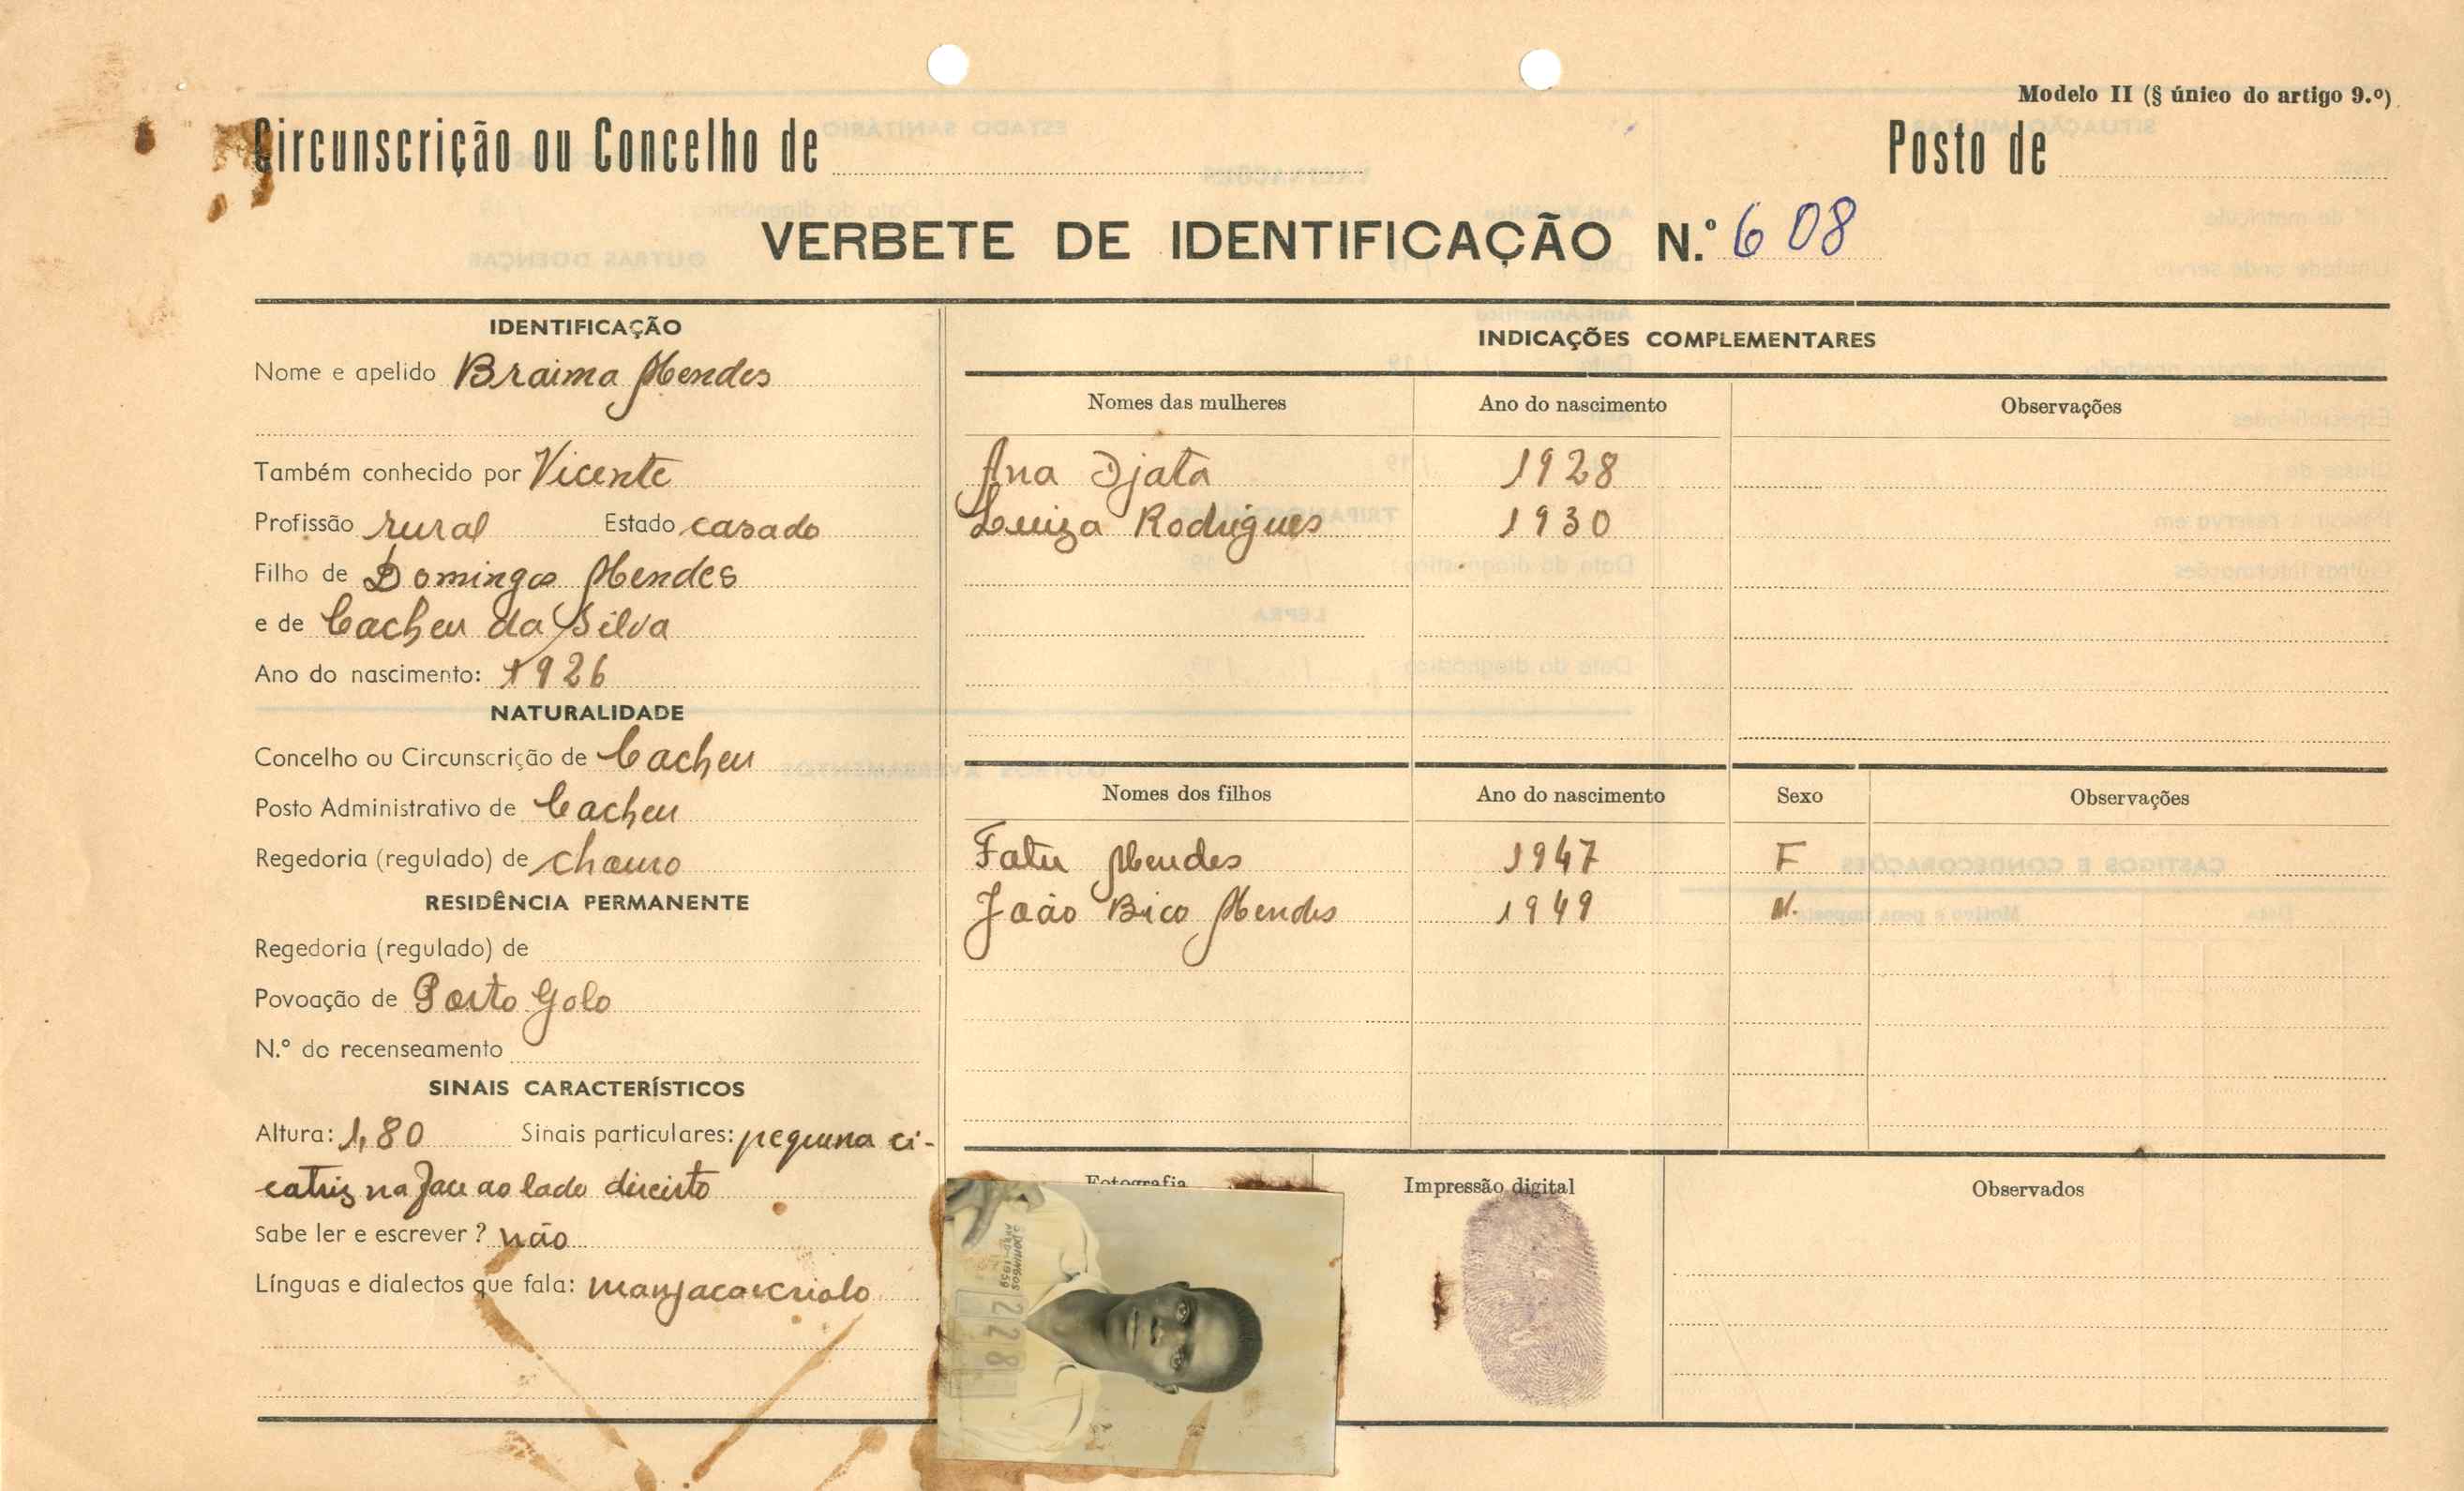 Modelo II (§ único do artigo 9.º)
Circunscrição ou Concelho de
Posto de
VERBETE DE IDENTIFICAÇÃO N.º 608
IDENTIFICAÇÃO
Nome e apelido Braima Mendes
Também conhecido por Vicente
Profissão rural Estado casado
Filho de Domingos Mendes
e de Cacheu da Silva
Ano do nascimento: 1926
NATURALIDADE
Concelho ou Circunscrição de Cacheu
Posto Administrativo de Cacheu
Regedoria (regulado) de
RESIDÊNCIA PERMANENTE
Regedoria (regulado) de
Povoação de Porto Golo
N.º do recenseamento
SINAIS CARACTERÍSTICOS
Altura: 1,80 Sinais particulares: pequena ci-
catriz na face ao lado direito
Sabe ler e escrever? não
Línguas e dialectos que fala: manjaca e criolo
INDICAÇÕES COMPLEMENTARES
Nomes das mulheres Ano do nascimento Observações
Ana Djata 1928
Luiza Rodrigues 1930
Nomes dos filhos Ano do nascimento Sexo Observações
Fatu Mendes 1947 F
João Bico Mendes 1949 M.
Fotografia
Impressão digital
Observados
DOMINGOS
1959
228